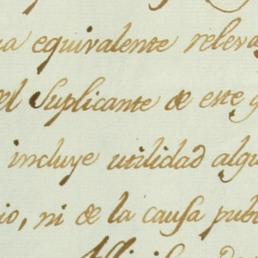 na equivalente releva
el Suplicante de este g
incluye utilidad algu
io, ni de la causa pub